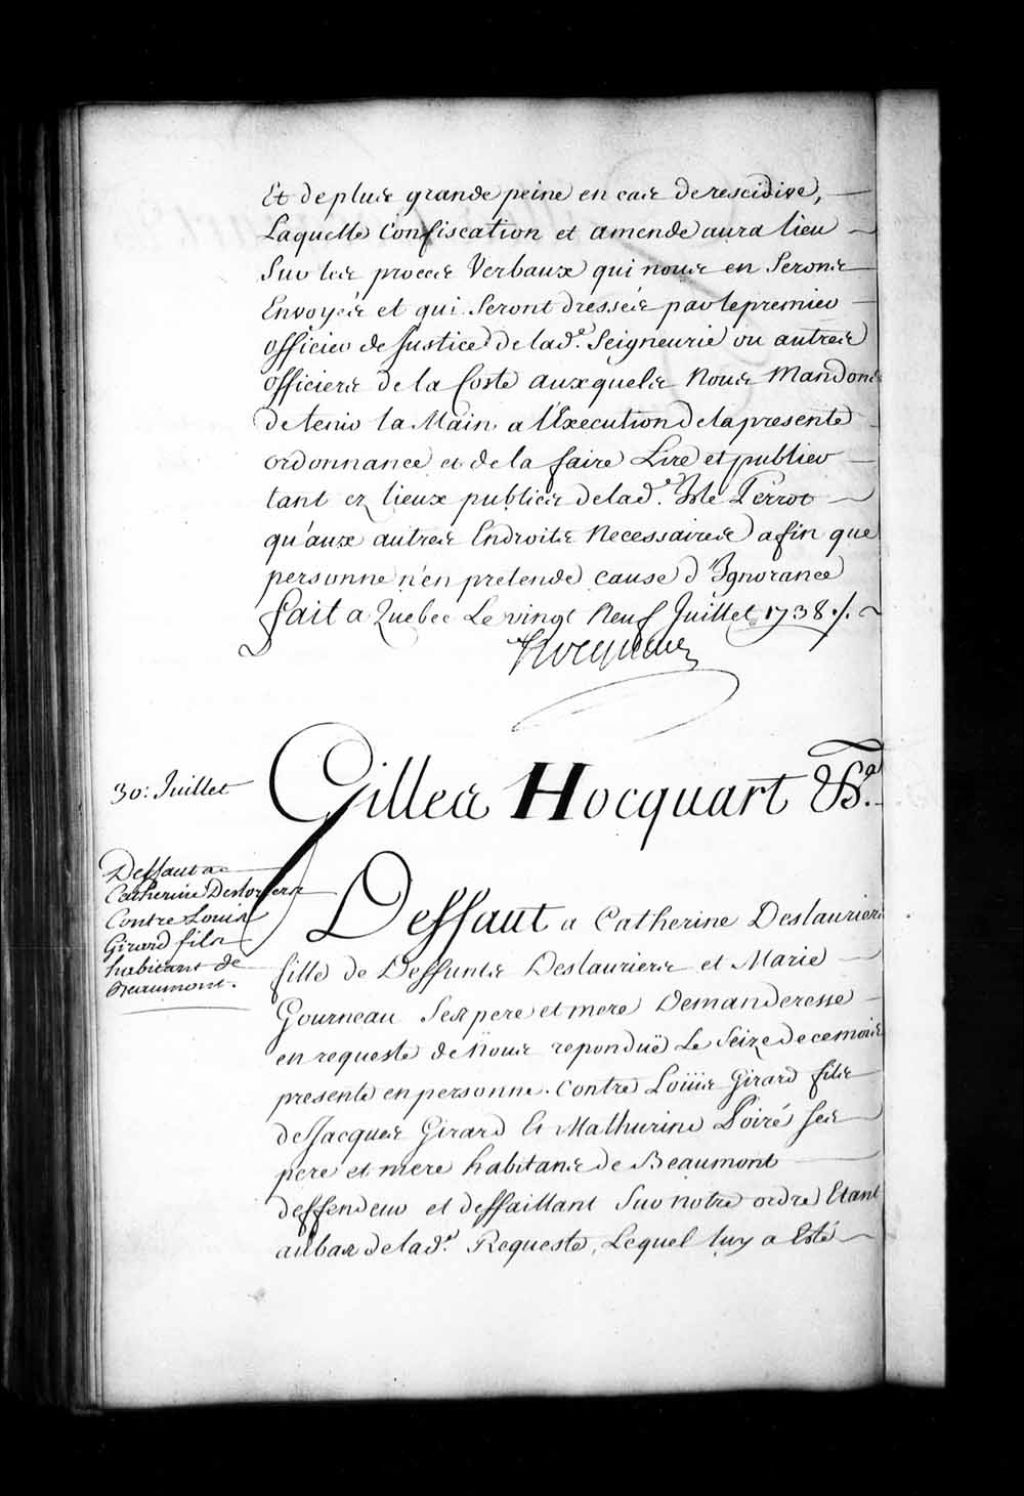 Et de plus grande peine en cas de rescidive,
Laquelle Confiscation et amende aura lieu
Sur les procès Verbaux qui nous en Seront
Envoyés et qui Seront dressés par le premier
officier de Justice de lad.e Seigneurie ou autres
officiers de la Coste auxquels Nous Mandons
de tenir la Main a l'Execution de la presente
ordonnance et de la faire Lire et publier
tant ez lieux publics de lad.e Isle Perrot
qu'aux autres Endroits Necessaires afin que
personne n'en pretende cause d'Ignorance
fait a Quebec Le vingt Neuf Juillet 1738 ./.
Hocquart
30: Juillet
Gilles Hocquart &c.a
Deffaut a
Catherine Desloriers
Contre Louis
Girard fils
habitant de
Beaumont.
Deffaut a Catherine Deslauriers
fille de Deffunts Deslauriers et Marie
Gourneau Ses pere et mere Demanderesse
en requeste de Nous reponduë Le Seize decembre
presente en personne. Contre Loüis Girard fils
de Jacques Girard Et Mathurine Poiré Ses
pere et mere habitans de Beaumont
deffendeur et deffaillant Sur notre ordre Etant
au bas de lad.e Requeste, Lequel luy a Esté